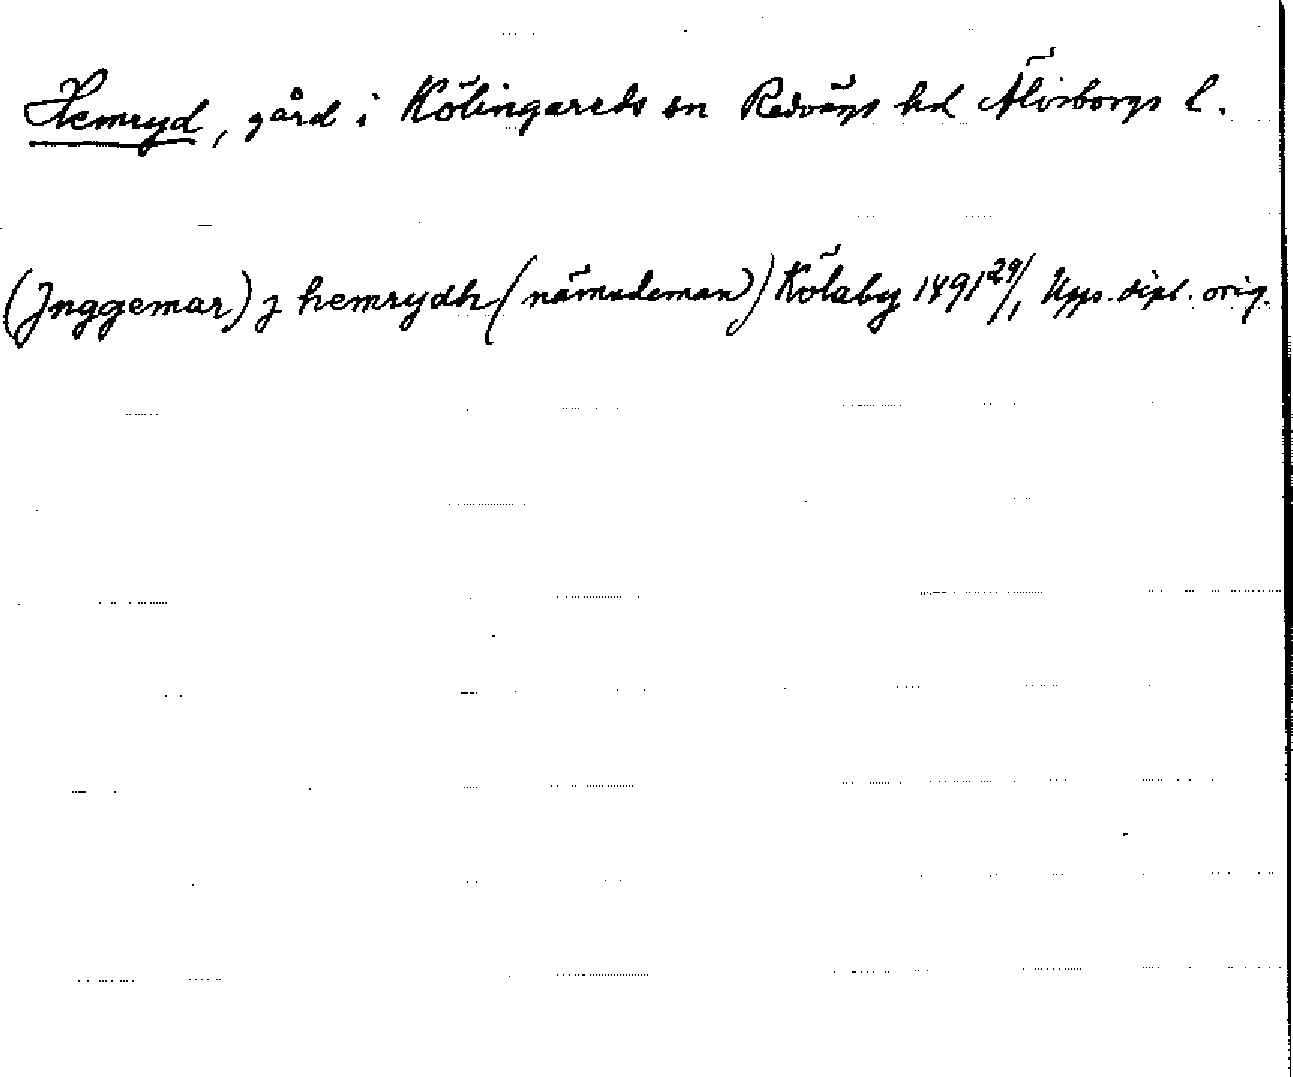 Hemryd, gård i Kölingareds sn Redvägs hd Älvsborgs l.
(Jnggemar) j hemrydh (nämndeman) Kölaby 1491 29/1 Upps. dipl. orig.